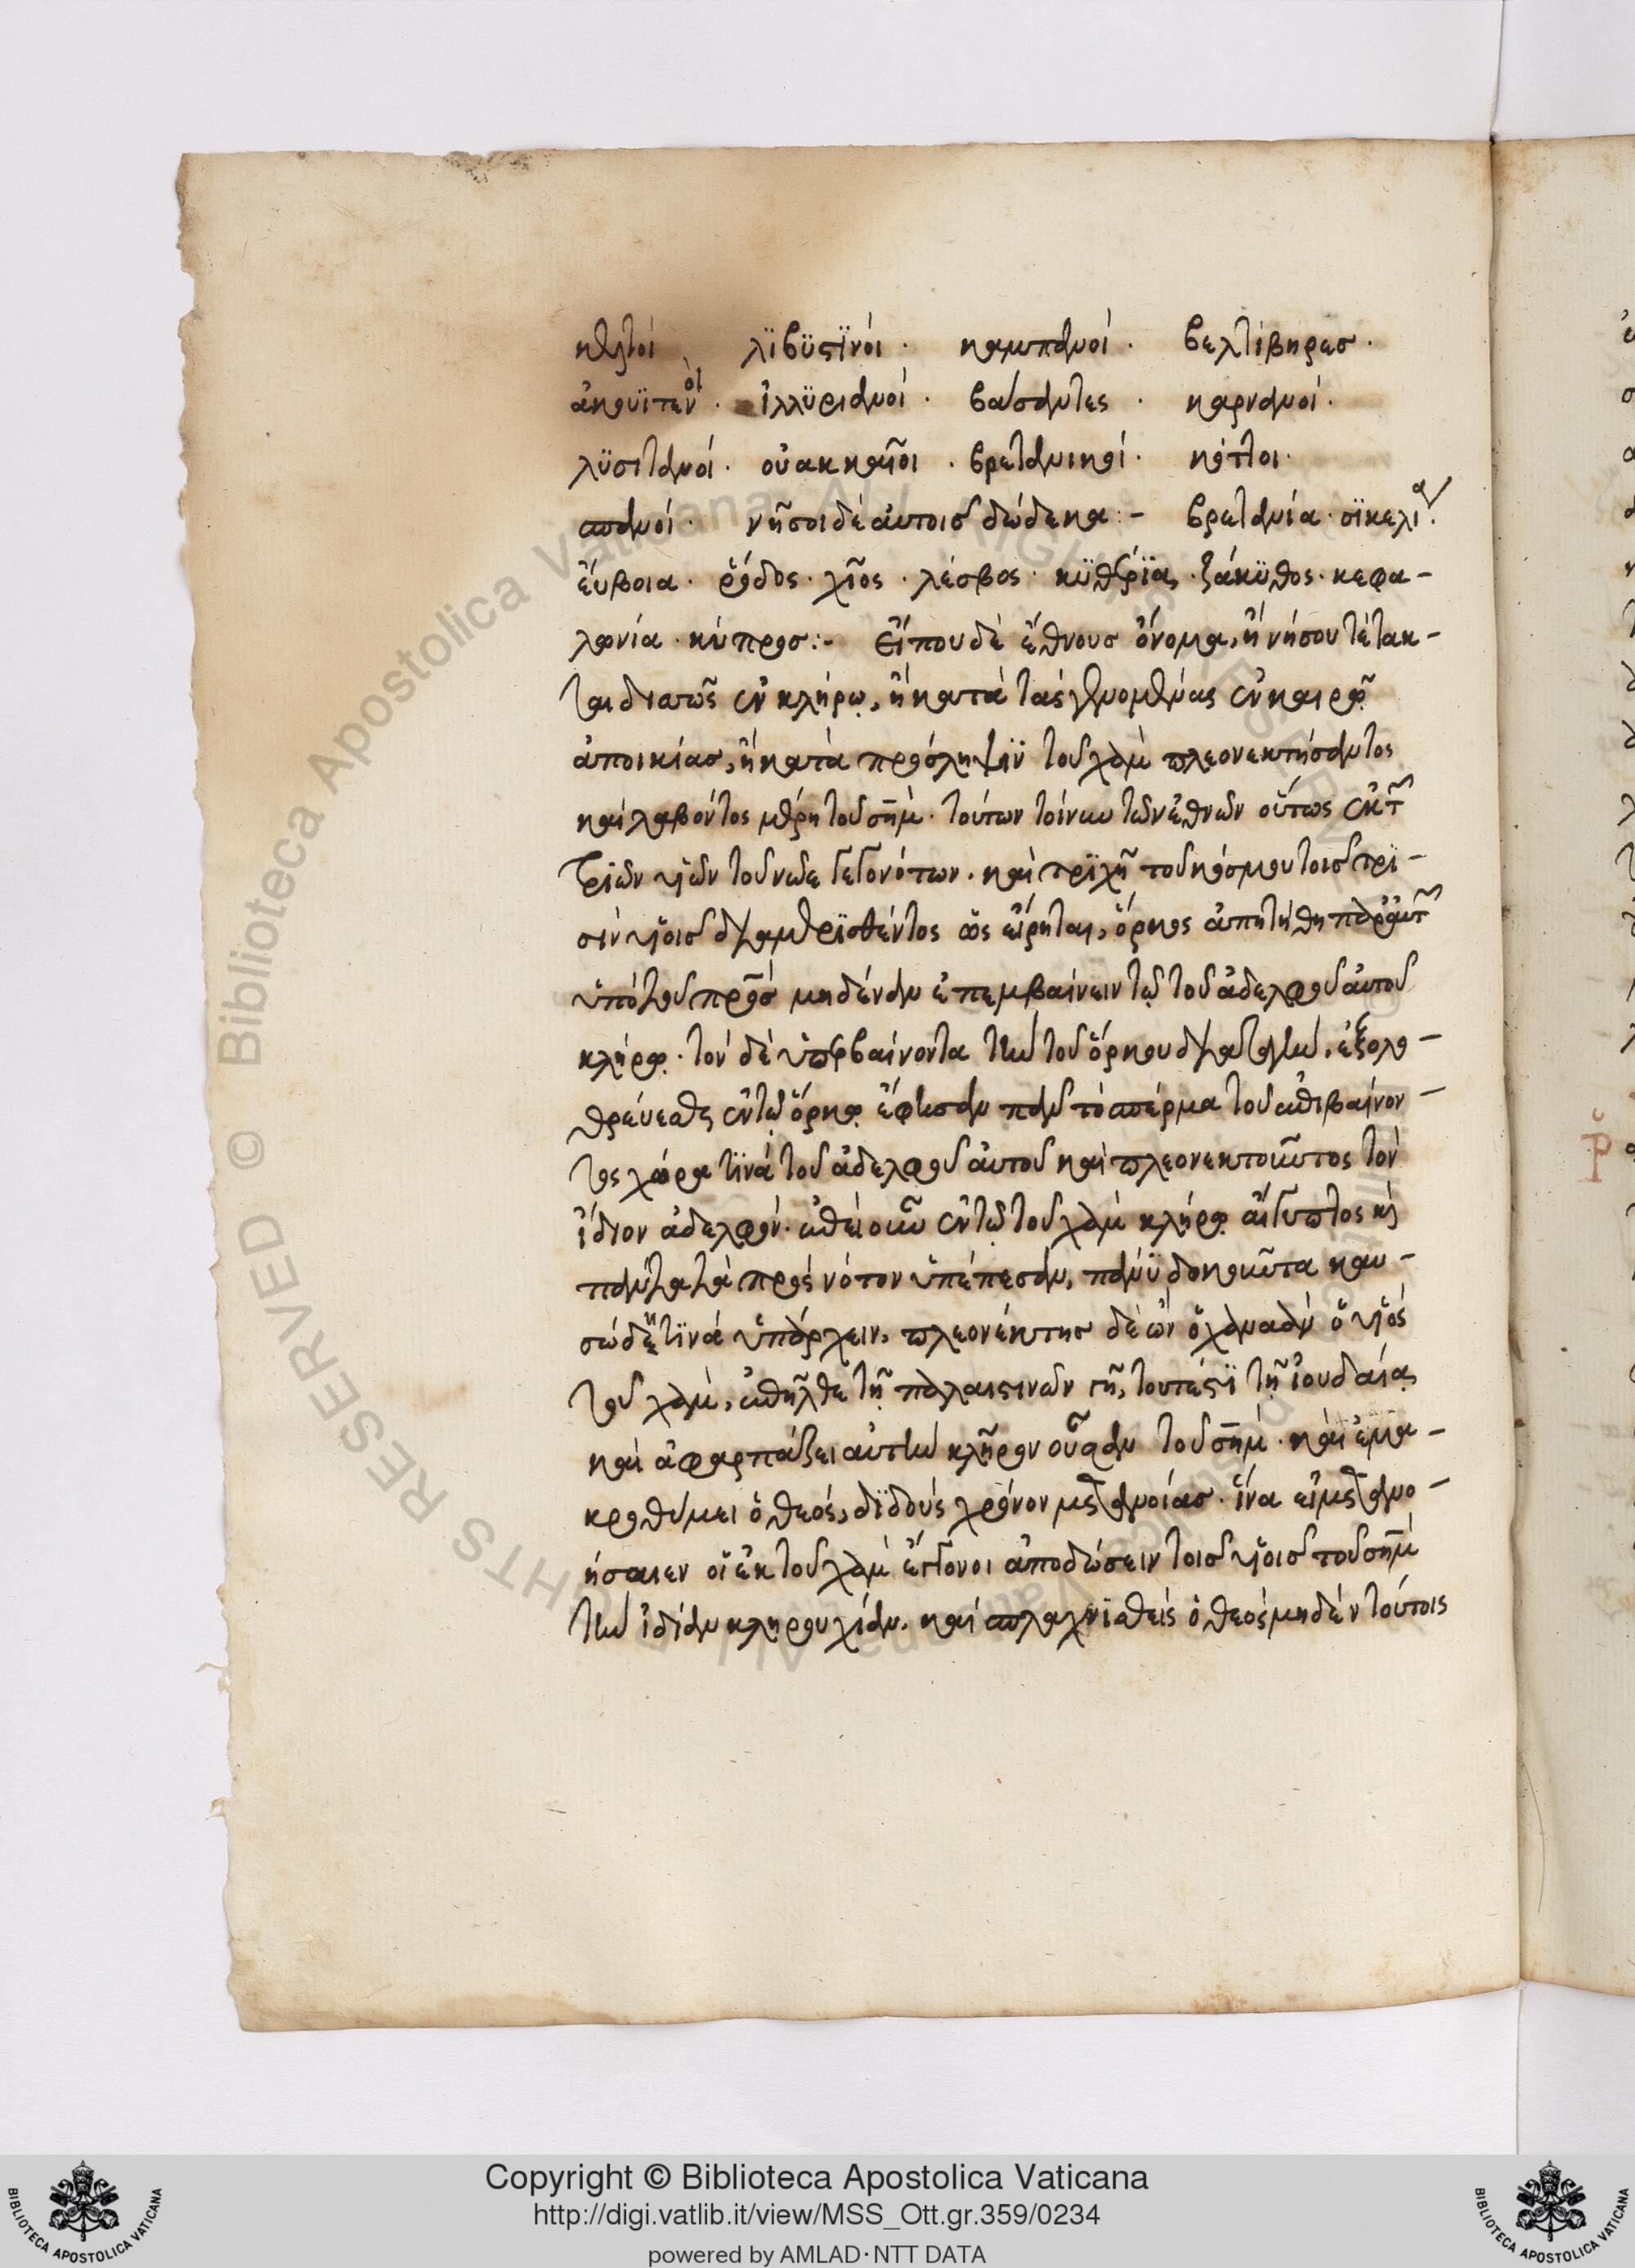 κελτοί λϊβϋστϊνοί · καμπανοί · βελτίβηρεσ ·
ἀκουϊτενοὶ · ἰλλϋριανοί · βάσαντες · καρνανοί ·
λϋσιτανοί · οὐακκαῖοι · βρετανικοί · κόττοι ·
σπανοί · νῆσοι δὲ ἀυτοισ δώδεκα :- βρετανία · σϊκελία ·
ἔυβοια · ῥόδος · χῖος · λέσβος · κϋθερϊα, · ζάκϋθος · κεφα-
λωνία · κύπροσ :- Εἴπου δὲ ἔθνουσ ὄνομα, ἢ νήσου τέτακ-
ται διαπῶς ἐν κλήρω, ἢ κατὰ τὰς γενομένας ἐν καιρῶ
ἀποικίασ, ἢ κατὰ πρόσληψϊν τοῦ χὰμ πλεονεκτήσαντος
καὶ λαβόντος μέρη τοῦ σῆμ · τούτων τοίνυν τῶν ἐθνῶν οὕτως ἐκ τ
τριῶν υἱῶν τοῦ νῶε γεγονότων · καὶ τρϊχῆ τοῦ κόσμου τοισ τρϊ-
σὶν υἱοισ διαμερϊσθέντος ὡς εἴρηται, ὅρκος ἀπητήθη παρ' αὐτ
ὑπὸ τοῦ πρσ μηδέναν ἐπεμβαίνειν τῶ τοῦ ἀδελφοῦ ἀυτοῦ
κλήρω · τὸν δὲ ὑπερβαίνοντα τὴν τοῦ ὅρκου διαταγὴν, ἐξολο-
θρέυεσθαι ἐν τῶ ὅρκω ἔφησαν πᾶν τὸ σπέρμα τοῦ ἐπιβαίνον-
τος χώρα τϊνὰ τοῦ ἀδελφοῦ ἀυτοῦ καὶ πλεονεκτοῦντος τὸν
ἴδιον ἀδελφόν · ἐπεὶ οὖν ἐν τῶ τοῦ χὰμ κλήρω αἴγυπτος κ
πάντα τὰ πρὸς νότον ὑπέπεσαν, πάνϋ δοκοῦντα καυ-
σώδη τϊνὰ ὑπάρχειν, πλεονέκτης δὲ ὢν ὁ χαναὰν ὁ υἱὸς
τοῦ χὰμ, ἐπῆλθε τῆ παλαιστινῶν γῆ, τουτέστϊ τῆ ἰουδαία,
καὶ ἀφαρπάζει αὐτὴν κλῆρον οὖσαν τοῦ σῆμ · καὶ ἐμα-
κροθύμει ὁ θεὸς, δϊδοὺς χρόνον μετανοίασ · ἵνα εἰ μετανο-
ήσαιεν οἱ ἐκ τοῦ χὰμ ἔκγονοι ἀποδώσειν τοισ υἱοισ τοῦ σῆμ
τὴν ἰδίαν κληρουχίαν, καὶ σπλαχνϊσθεὶς ὁ θεὸς μηδὲν τούτοις
Copyright © Biblioteca Apostolica Vaticana
http://digi.vatlib.it/view/MSS_Ott.gr.359/0234
powered by AMLAD·NTT DATA